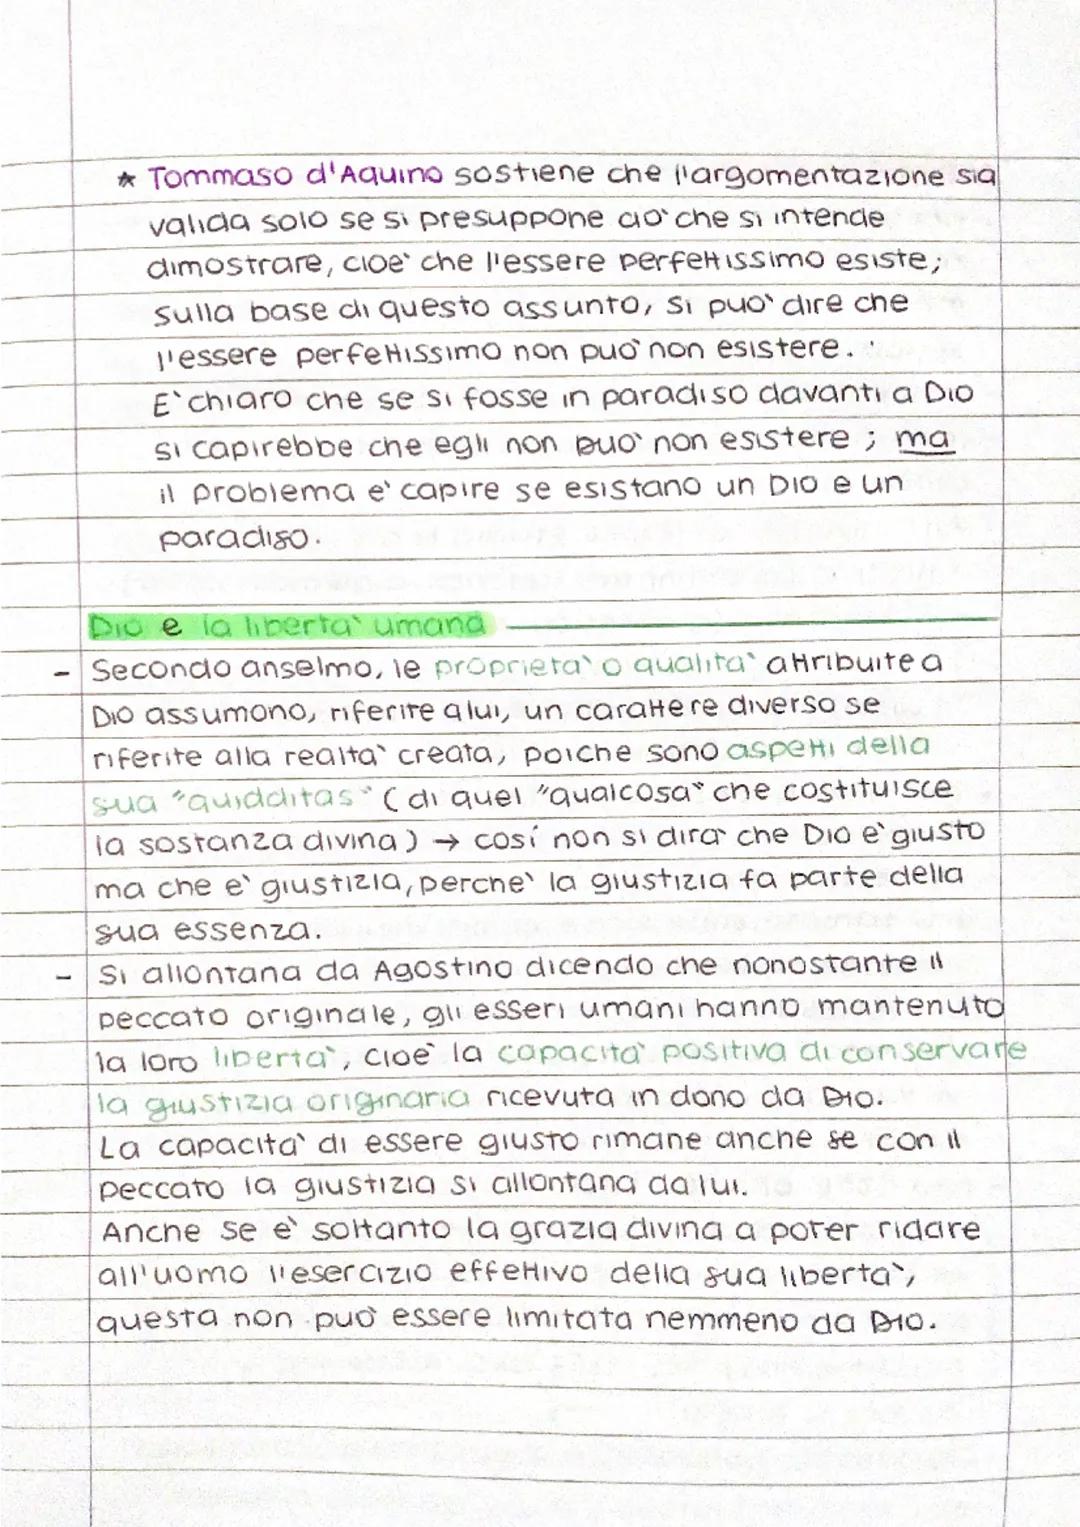 * Tommaso d'Aquino sostiene che l'argomentazione sia
valida solo se si presuppone cio' che si intende
dimostrare, cioe' che l'essere perfettissimo esiste;
sulla base di questo assunto, si puo' dire che
l'essere perfettissimo non puo' non esistere.
E' chiaro che se si fosse in paradiso davanti a Dio
si capirebbe che egli non puo' non esistere; ma
il problema e' capire se esistano un Dio e un
paradiso.
Dio e la liberta' umana
- Secondo anselmo, le proprieta' o qualita' attribuite a
Dio assumono, riferite a lui, un carattere diverso se
riferite alla realta' creata, poiche sono aspetti della
sua "quidditas" (di quel "qualcosa" che costituisce
la sostanza divina) → cosí non si dira' che Dio e' giusto
ma che e' giustizia, perche' la giustizia fa parte della
sua essenza.
- Si allontana da Agostino dicendo che nonostante il
peccato originale, gli esseri umani hanno mantenuto
la loro liberta', cioe' la capacita' positiva di conservare
la giustizia originaria ricevuta in dono da Dio.
La capacita' di essere giusto rimane anche se con il
peccato la giustizia si allontana da lui.
Anche se e' soltanto la grazia divina a poter ridare
all'uomo l'esercizio effettivo della sua liberta',
questa non può essere limitata nemmeno da Dio.